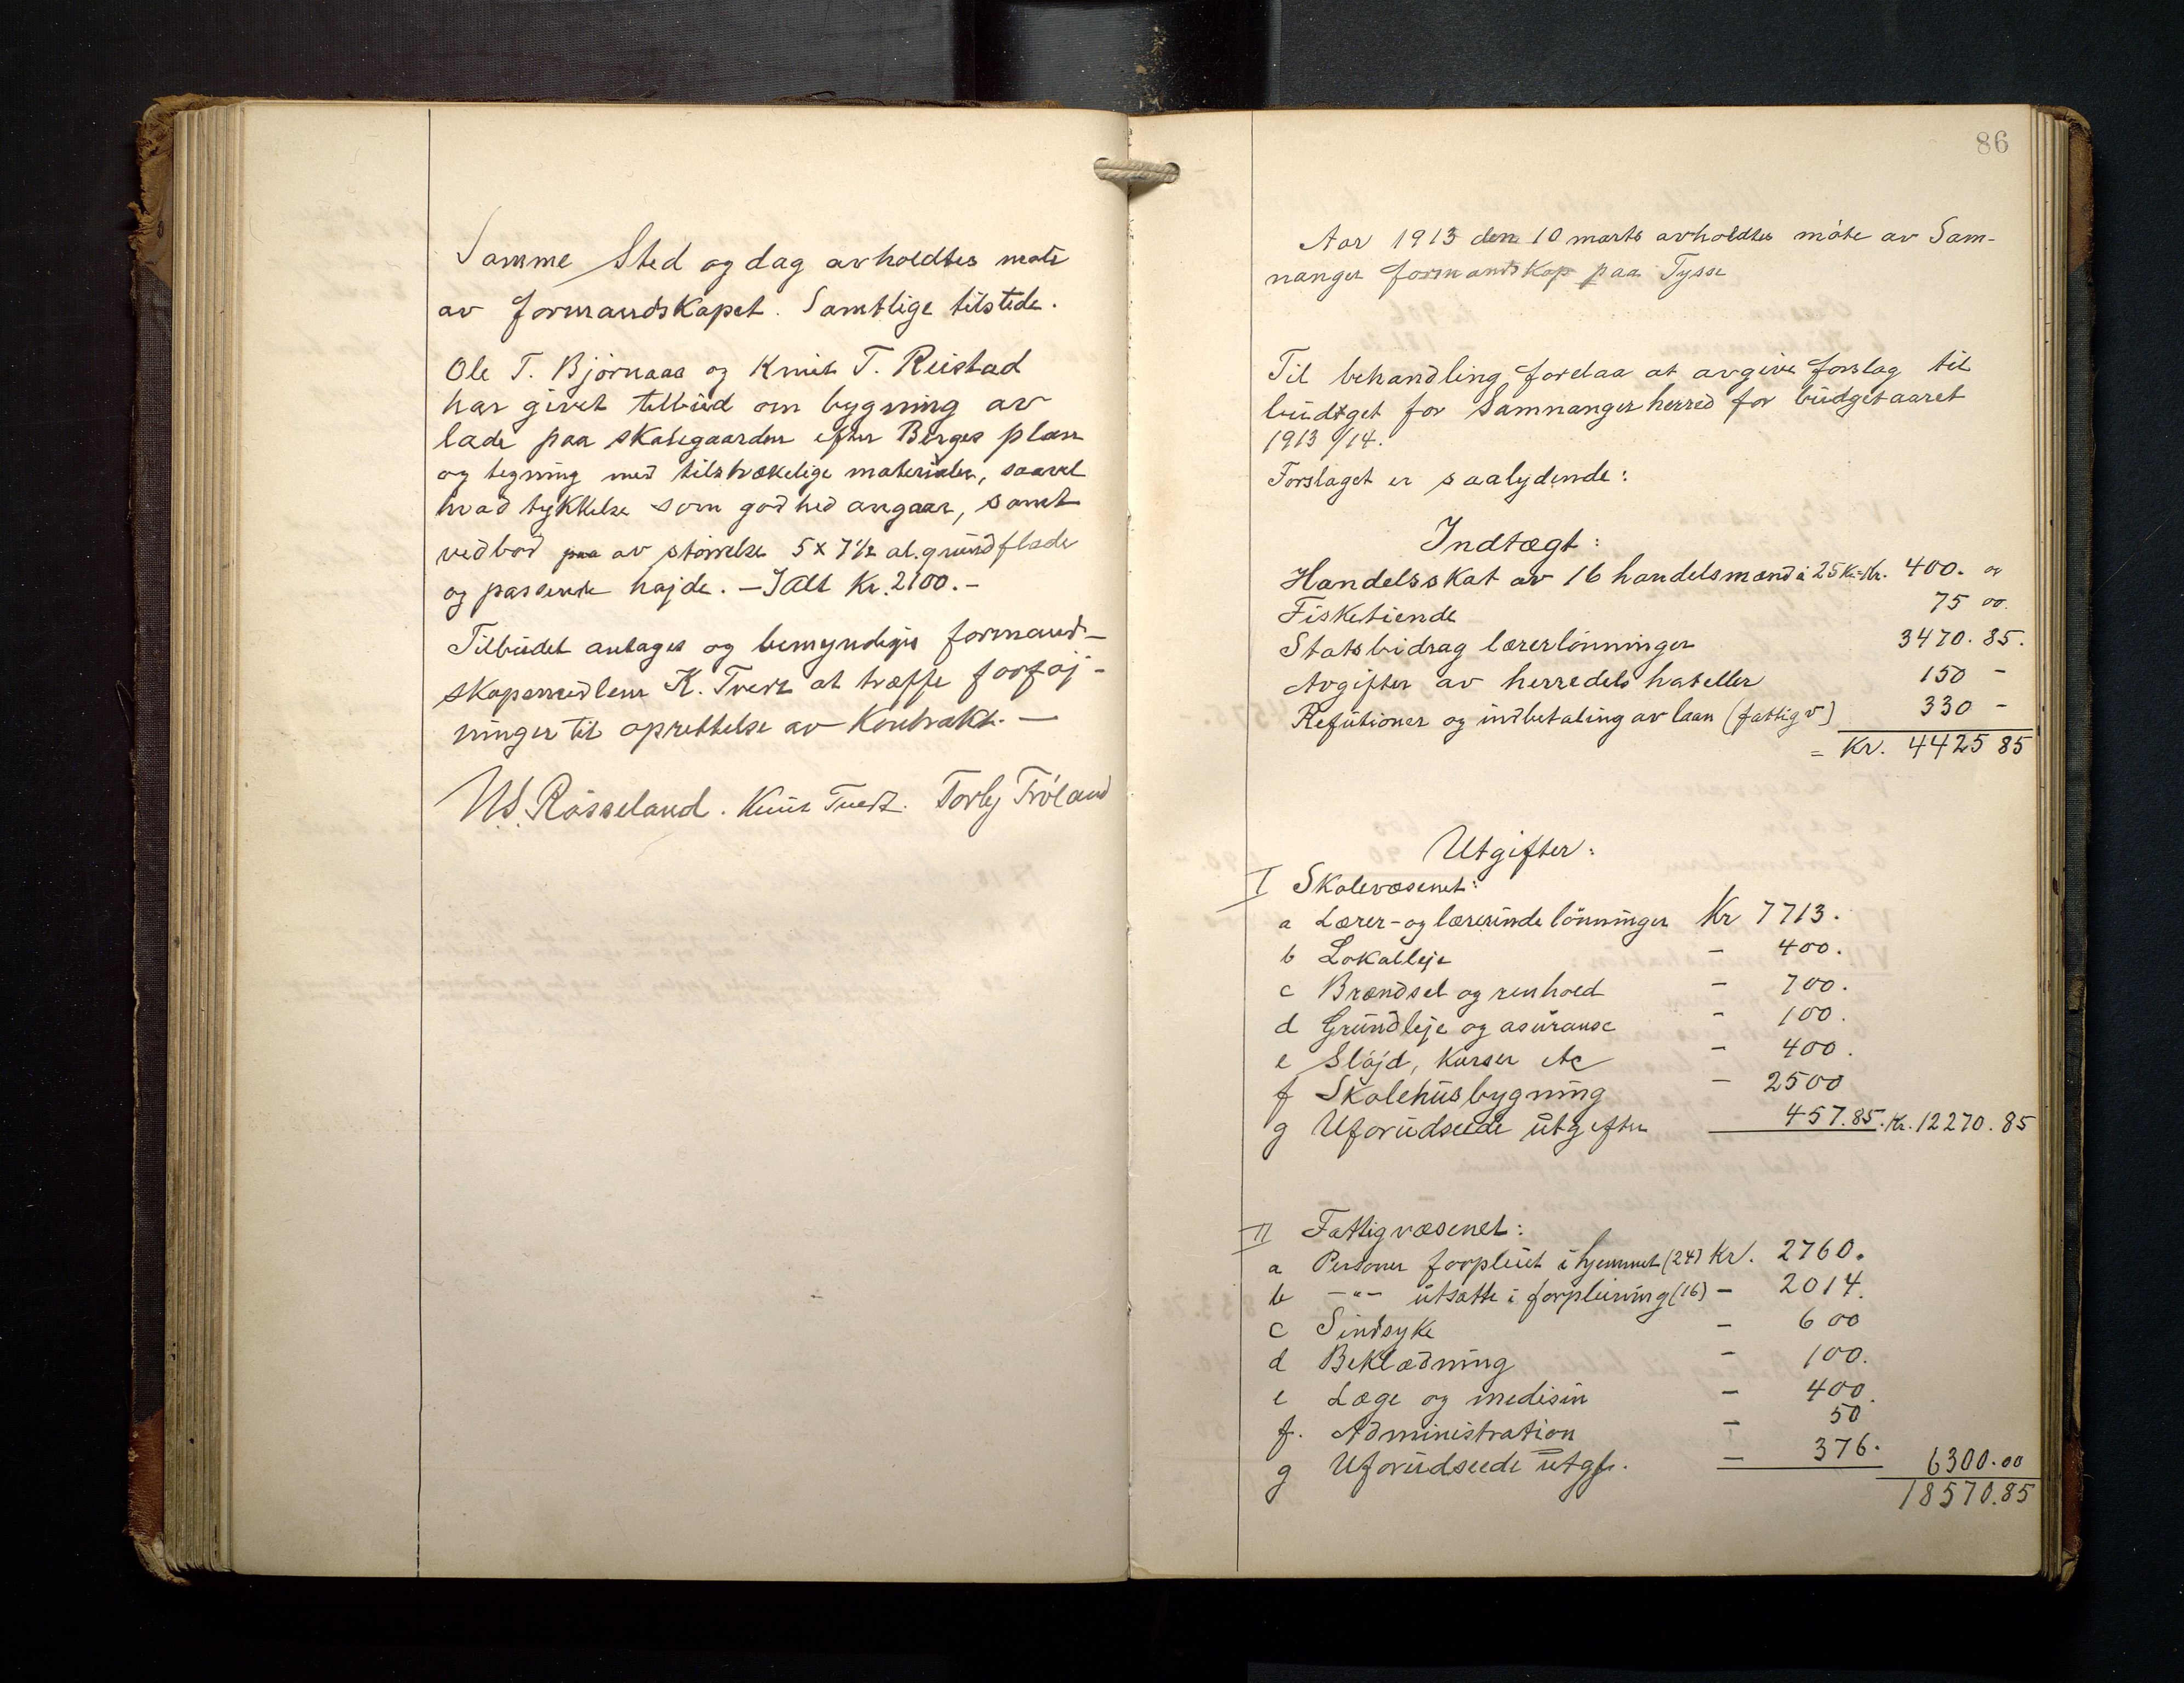 Samme Sted og dag avholdtes møte
av formandskapet. Samtlige tilstede.
Ole T. Bjørnaaa og Knut T. Reistad
har givet tilbud om bygning av
lade paa skolegaarden efter Berges plan
og tegning med tilstrækelige materialer, saavel
hvad tykkelse som godhed angaar, samt
vedbod paa av størrelse 5 x 7 1/2 al. grundflade
og passende højde. – I alt Kr. 2100.–
Tilbudet antages og bemyndiges formand-
skapsmedlem K. Tvedt at træffe forføj-
ninger til oprettelse av Kontrakt. –
N.S. Røsseland. Knut Tvedt. Torlej Frøland
86
Aar 1913 den 10 marts avholdtes møte av Sam-
nanger formandskap paa Tysse
Til behandling forelaa at avgive forslag til
budtget for Samnanger herred for budgetaaret
1913/14.
Forslaget er saalydende:
Indtægt:
Handelsskat av 16 handelsmænd à 25 Kr = Kr. 400. 00
Fisketiende 75 00.
Statsbidrag lærerlønninger 3470. 85.
Avgifter av herredets hoteller 150 –
Refutioner og indbetaling av laan (fattigv) 330 –
= Kr. 4425 85
Utgifter:
I Skolevæsenet:
a Lærer- og lærerinde lønninger Kr 7713.
b Lokalleje – 400.
c Brændsel og renhold – 700.
d Grundleje og asuranse – 100.
e Sløjd, kurser etc – 400.
f Skolehusbygning – 2500
g Uforudseede utgifter 457.85. Kr. 12270. 85
II Fattigvæsenet:
a Personer forpleiet i hjemmet (24) Kr. 2760.
b –"– utsatte i forpleining (16) – 2014.
c Sindsyke – 600
d Beklædning – 100.
e Læge og medisin – 400.
f. Administration – 50
g Uforudseede utgf. – 376. 6300.00
18570.85